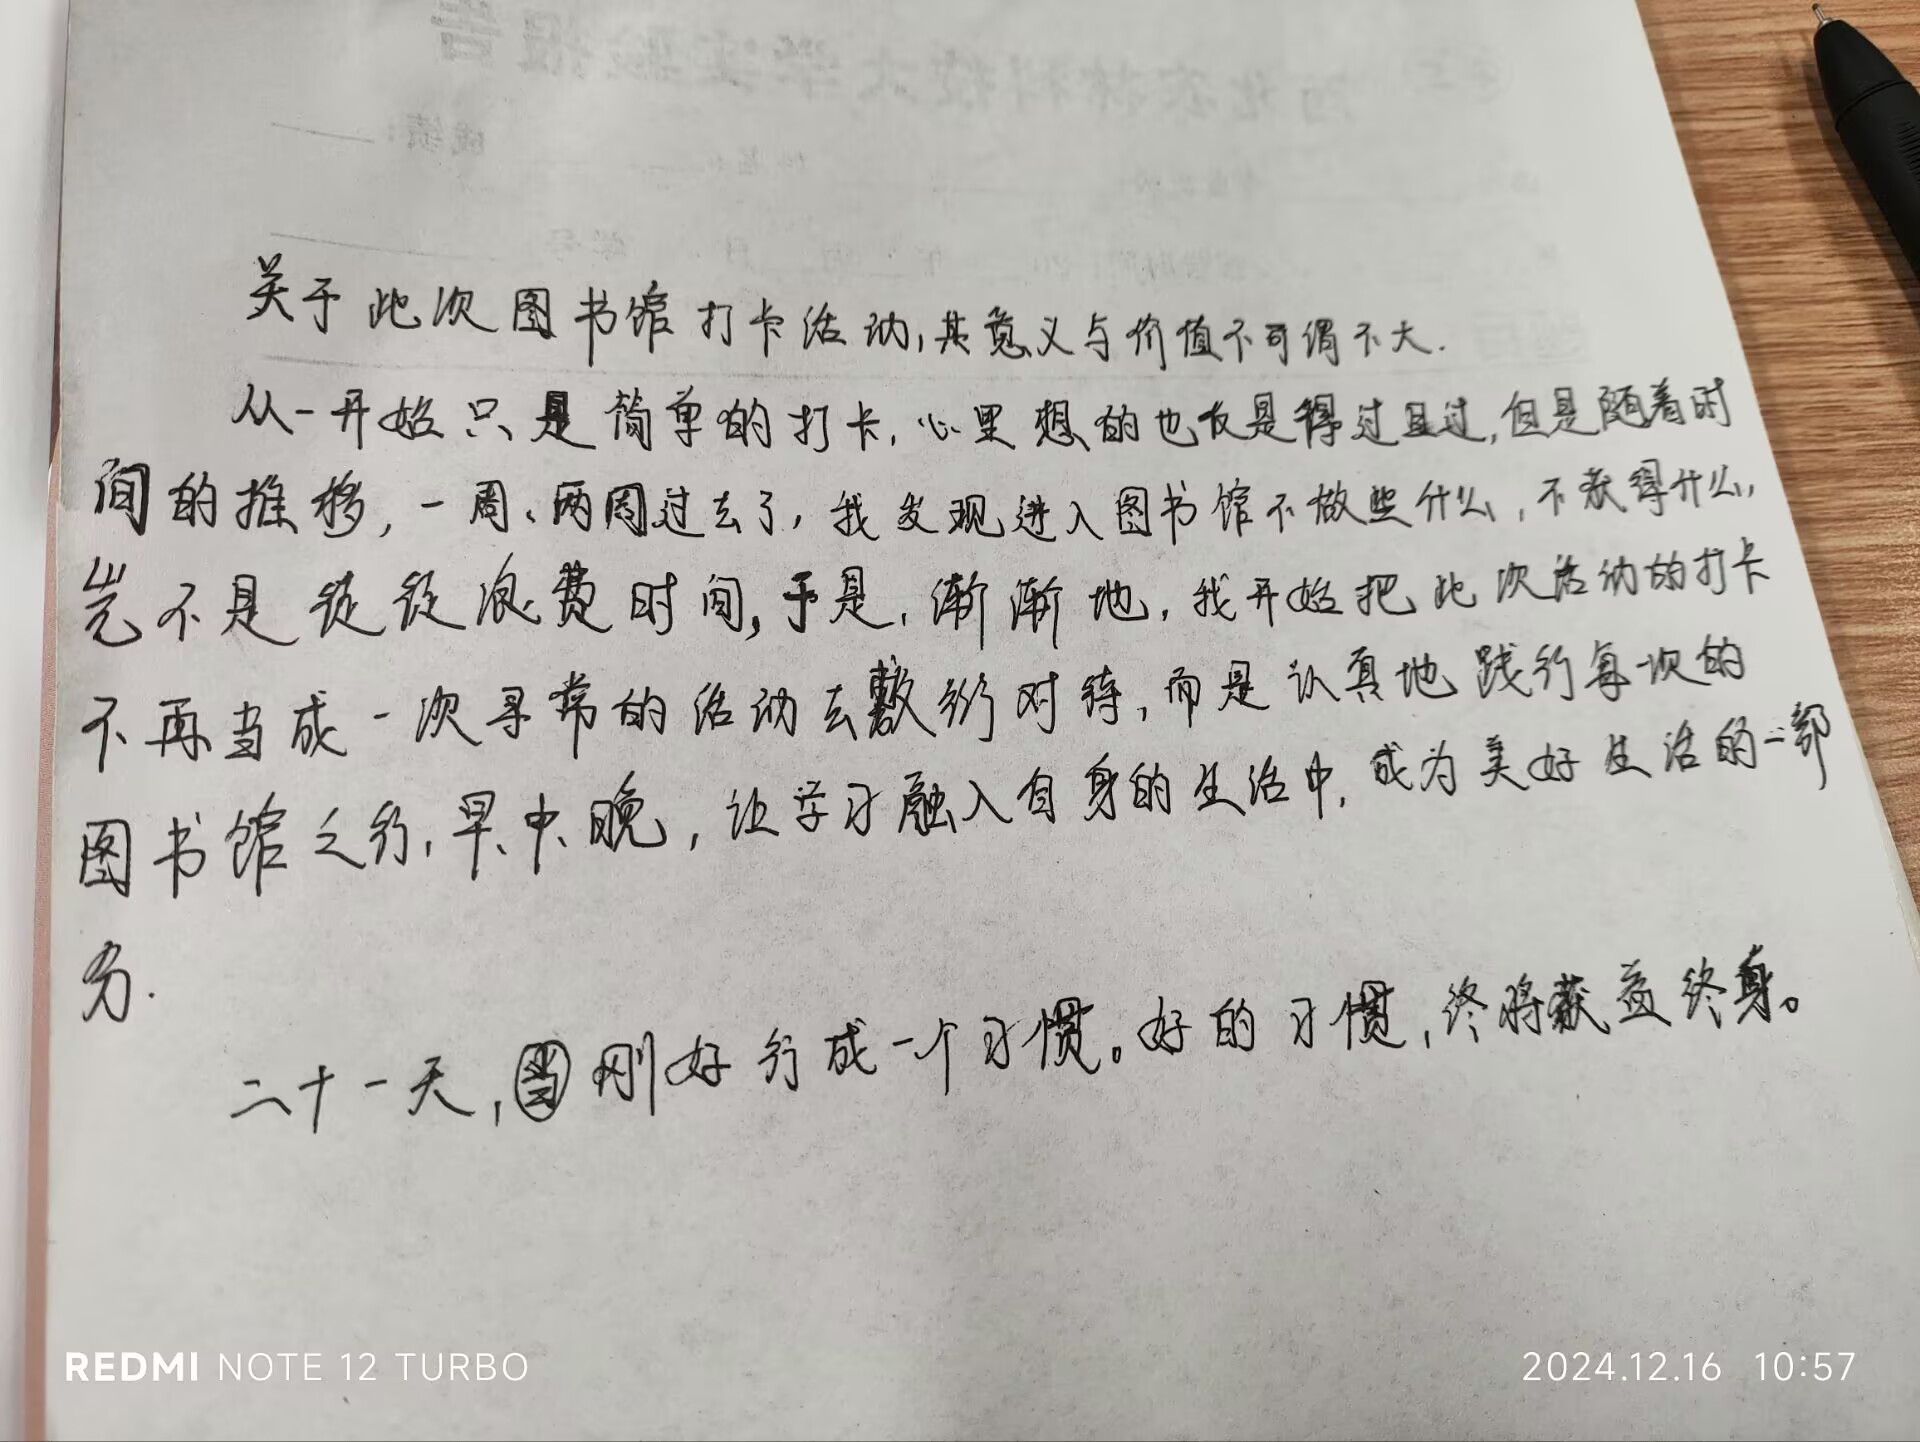 关于此次图书馆打卡活动,其意义与价值不可谓不大.
从一开始只是简单的打卡,心里想的也仅是得过且过,但是随着时
间的推移,一周、两周过去了,我发现进入图书馆不做些什么,不获得什么,
岂不是徒徒浪费时间,于是,渐渐地,我开始把此次活动的打卡
不再当成一次寻常的活动去敷衍对待,而是认真地践行每一次的
图书馆之行,早、中、晚,让学习融入自身的生活中,成为美好生活的一部
分.
二十一天,刚好行成一个习惯。好的习惯,终将获益终身。
REDMI NOTE 12 TURBO
2024.12.16 10:57